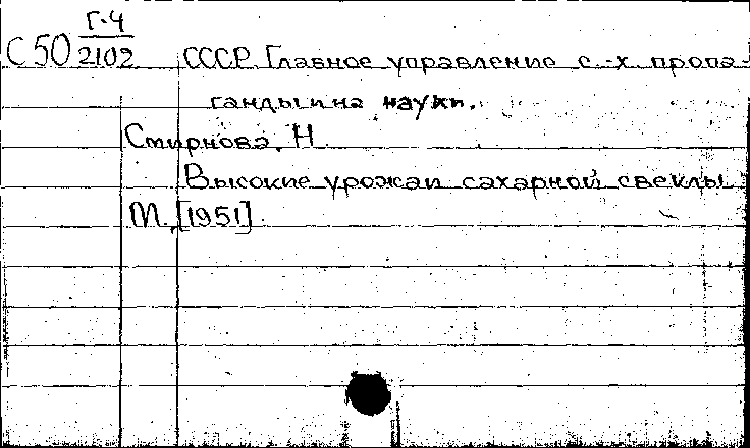 Г-4
С 50 2102 СССР. Главное управление с.-х. пропа-
ганды и на науки.
Смирнова, Н
Высокие урожаи сахарной свеклы.
М., [1951]